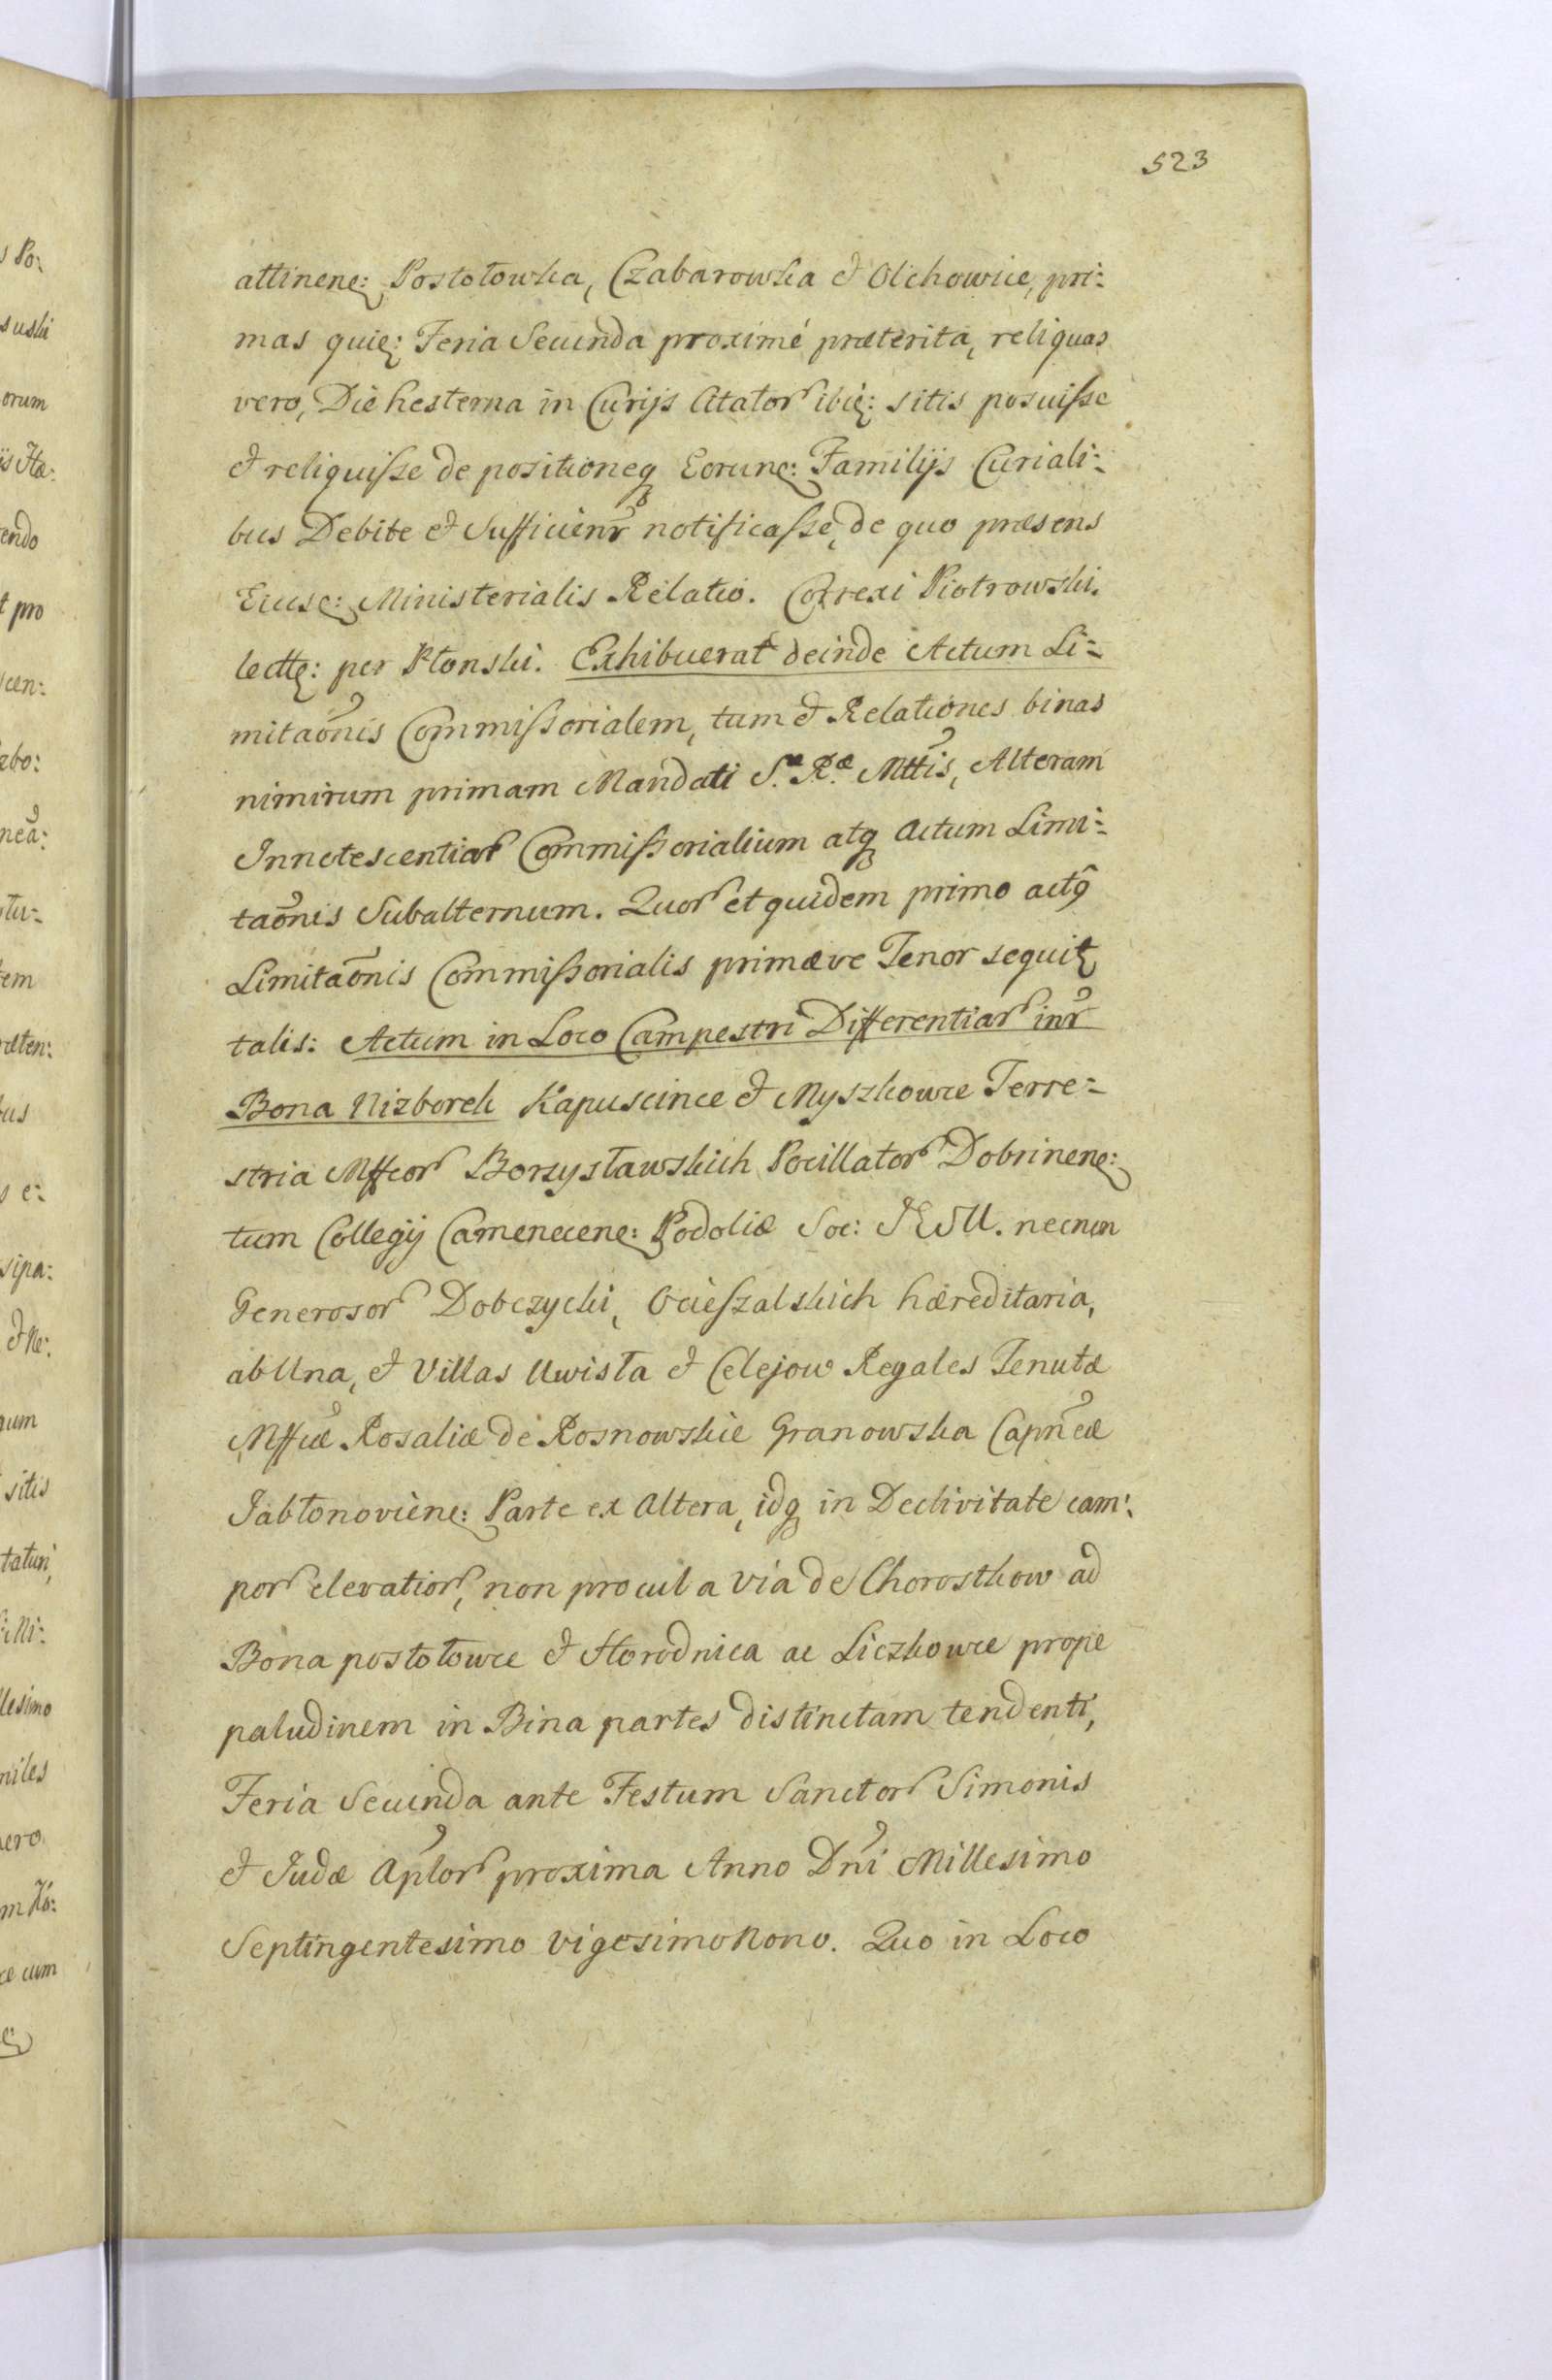 523
attinenę: Postołowka, Czabarowka & Olchowice, pri:
mas quię: Feria Secunda proximé præterita, reliquas
vero, Die hesterna in Curijs Citator ibię: sitis posuisse
& reliquisse de positioneq Eorunę: Familijs Curiali:
bus Debite & Sufficienr notificasse, de quo præsens
Eiusę: Ministerialis Relatio. Correxi Piotrowski.
lecttę: per Płonski. Exhibuerat deinde Actum Li:
mitaonis Commissorialem, tum & Relationes binas
nimirum primam Mandati S.æ R.æ Mttis, Alteram
Innotescentiar Commissorialium atq Actum Limi:
taonis Subalternum. Quor et quidem primo act9
Limitaonis Commissorialis primæve Tenor sequit
talis: Actum in Loco Campestri Differentiar inr
Bona Nizborek Kapuscince & Myszkowce Terre:
stria Mffcor Borzysławskich Pocillator Dobrinenę:
tum Collegij Camenecenę: Podoliæ Soc: JESU. necnon
Generosor Dobczycki, Ocieszalskich hæreditaria,
ab Una, & Villas Uwisła & Celejow Regales Tenutæ
Mffcæ Rosaliæ de Rosnowskie Granowska Capneæ
Jabłonovienę: Parte ex Altera, idq in Declivitate cam:
por elevatior, non procul a via de Chorostkow ad
Bona postołowce & Horodnica ac Liczkowce prope
paludinem in Bina partes distinctam tendenti,
Feria Secunda ante Festum Sanctor Simonis
& Judæ Aplor proxima Anno Dni Millesimo
Septingentesimo vigesimo Nono. Quo in Loco